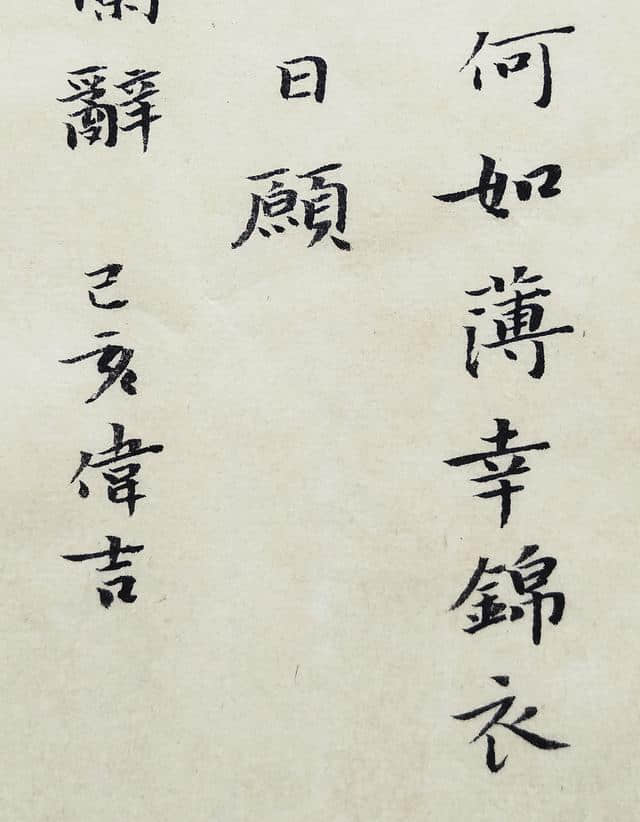 何如薄幸錦衣
日願
蘭辭 己亥偉吉